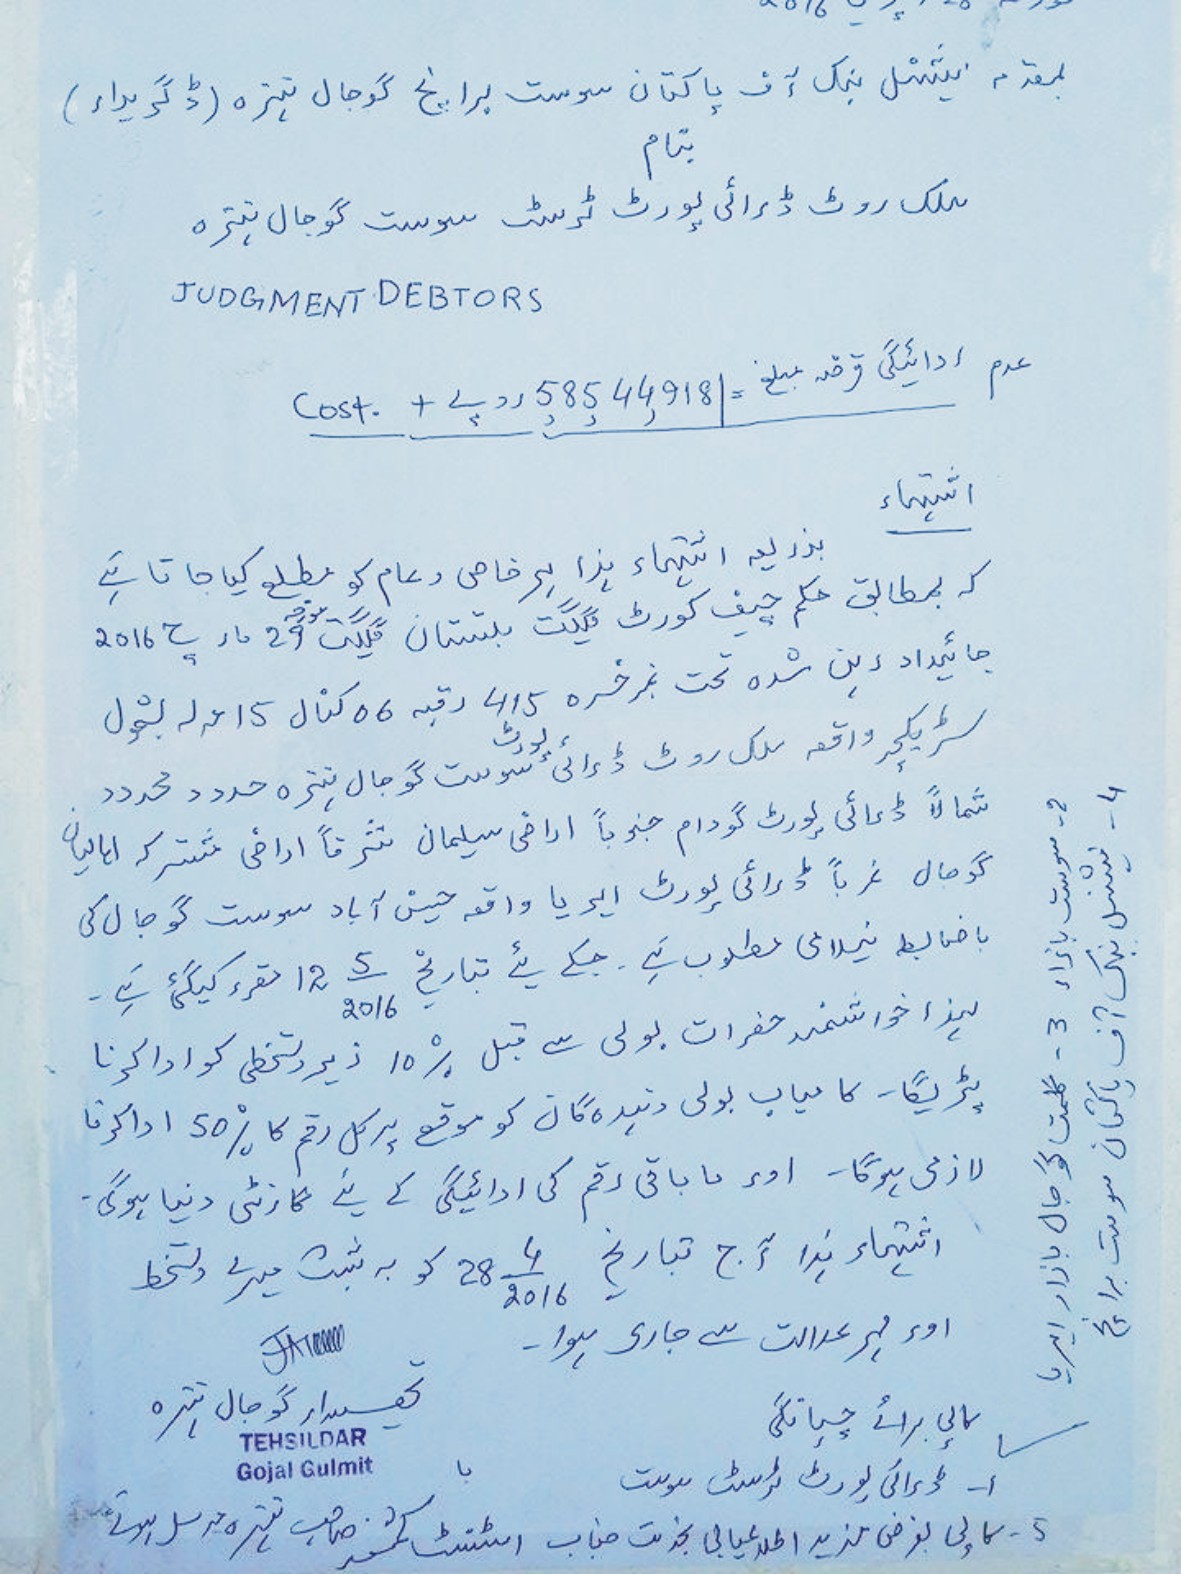 مورخہ 28 اپریل 2016
بمقدمہ نیشنل بنک آف پاکستان سوست برانچ گوجال ہنزہ (ڈگریدار)
بنام
سلک روٹ ڈرائی پورٹ ٹرسٹ سوست گوجال ہنزہ
JUDGMENT DEBTORS
عدم ادائیگی قرضہ مبلغ =/58544918 روپے + Cost.
اشتہار
بذریعہ اشتہار ہذا ہر خاص و عام کو مطلع کیا جاتا ہے
کہ بمطابق حکم چیف کورٹ گلگت بلتستان گلگت مورخہ 29 مارچ 2016
جائیداد رہن شدہ تحت نمبر خسرہ 415 رقبہ 06 کنال 15 مرلہ بشمول
سٹریکچر واقعہ سلک روٹ ڈرائی پورٹ سوست گوجال ہنزہ حدود محدود
شمالاً ڈرائی پورٹ گودام جنوباً اراضی سلیمان شرقاً اراضی مشترکہ اہالیان
گوجال غرباً ڈرائی پورٹ ایریا واقعہ حسن آباد سوست گوجال کی
باضابطہ نیلامی مطلوب ہے۔ جسکے لئے بتاریخ 12 5/2016 مقرر کیگئی ہے۔
لہذا خواشمند حضرات بولی سے قبل 10% زیر دستخطی کو ادا کرنا
پڑیگا۔ کامیاب بولی دہندہ گان کو موقع پر کل رقم کا 50% ادا کرنا
لازمی ہوگا۔ اور ما باقی رقم کی ادائیگی کے لئے گارنٹی دینا ہوگی۔
اشتہار ہذا آج بتاریخ 28 4/2016 کو بہ ثبت میرے دستخط
اور مہر عدالت سے جاری ہوا۔
تحصیلدار گوجال ہنزہ
TEHSILDAR
Gojal Gulmit
کاپی برائے چسپانگی
1۔ ڈرائی پورٹ ٹرسٹ سوست
2۔ سوست بازار 3۔ گلمت گوجال بازار ایریا
4۔ نیشنل بنک آف پاکستان سوست برانچ
5۔ کاپی بغرض مزید اطلاعیابی بخدمت جناب اسسٹنٹ کمشنر صاحب ہنزہ مرسل ہوئے